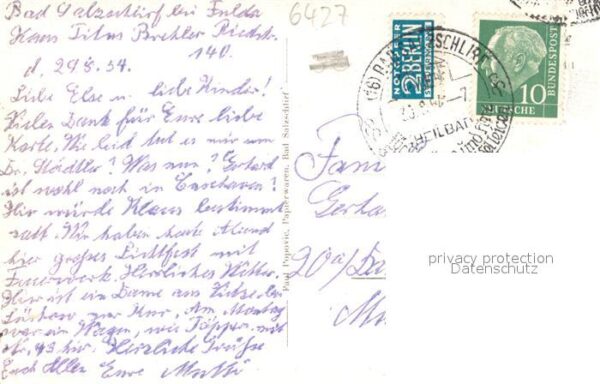 Bad Salzschlirf bei Fulda
Haus Titus Riedstr.
140.
d. 29.8.54.
Liebe Else u. liebe Kinder!
Vielen Dank für Eure liebe
Karte. Wie leid tut es mir um
Dr. Städtler! Was nun? Gerhard
ist wohl noch in Cuxhaven?
Hier würde Klaus bestimmt
satt. Wir haben heute Abend
hier großes Lichtfest mit
Feuerwerk. Herrliches Wetter.
Hier ist ein Dame aus
Lüchow zur Kur. Am Montag
war ein Wagen, wie Töpper mit
Nr. 43 hier. Herzliche Grüße
Euch Allen Eure Mutti
6427
NOTOPFER
2 BERLIN
STEUERMARKE
DEUTSCHE
BUNDESPOST
10
(16) BAD SALZSCHLIRF
HEILBAD
Paul Popovic, Papierwaren, Bad Salzschlirf
Fam
Gerha
20a/
privacy protection
Datenschutz